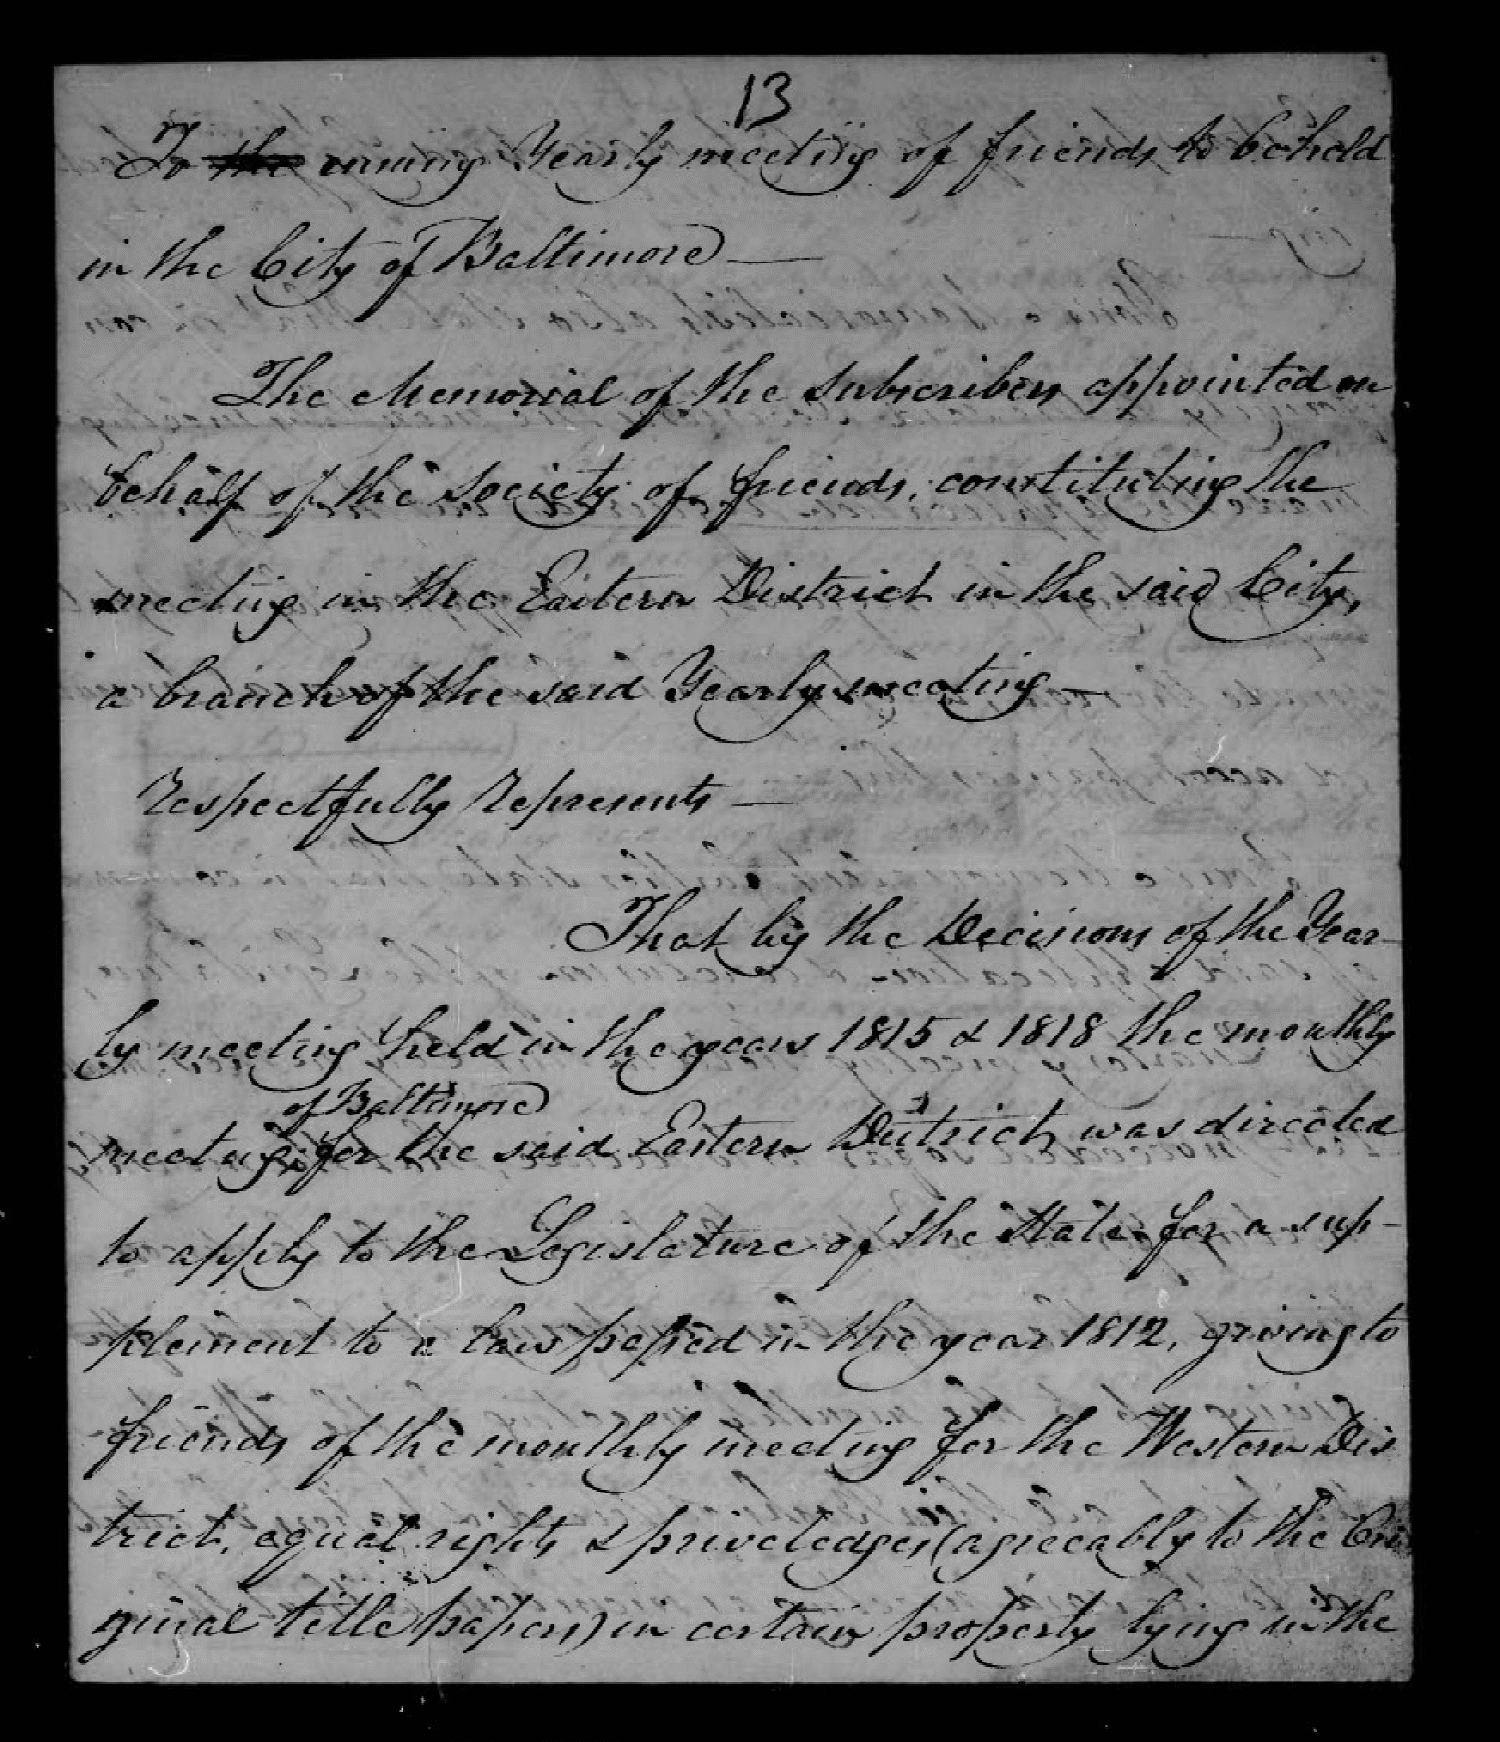 13
To the enuing Yearly meeting of friends to be held
in the City of Baltimore —
The Memorial of the Subscribers appointed on
behalf of the Society of friends, constituting the
meeting in the Eastern District in the said City,
a branch of the said Yearly meeting —
respectfully represents —
That by the Decisions of the Year-
ly meeting held in the years 1815 & 1818 the monthly
of Baltimore
meeting for the said Eastern District, was directed
to apply to the Legislature of the State for a sup-
plement to a law passed in the year 1812, giving to
friends of the monthly meeting for the Western Dis
trict, equal rights & priveledges (agreeably to the Ori
ginal title papers) in certain property lying in the